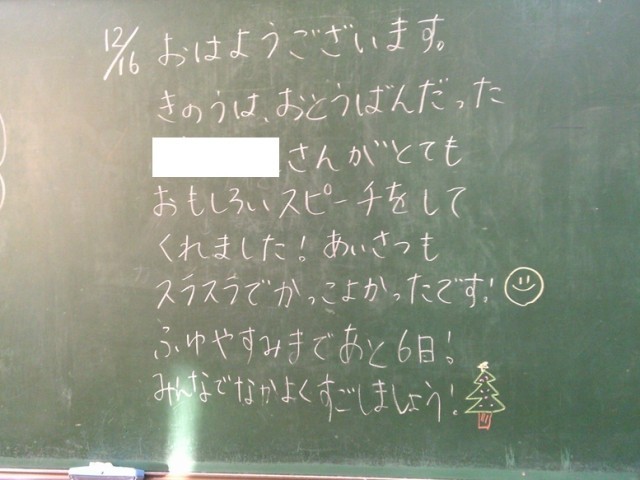 12/16 おはようございます。
きのうは、おとうばんだった
さんがとても
おもしろいスピーチをして
くれました!あいさつも
スラスラでかっこよかったです!
ふゆやすみまであと6日!
みんなでなかよくすごしましょう!